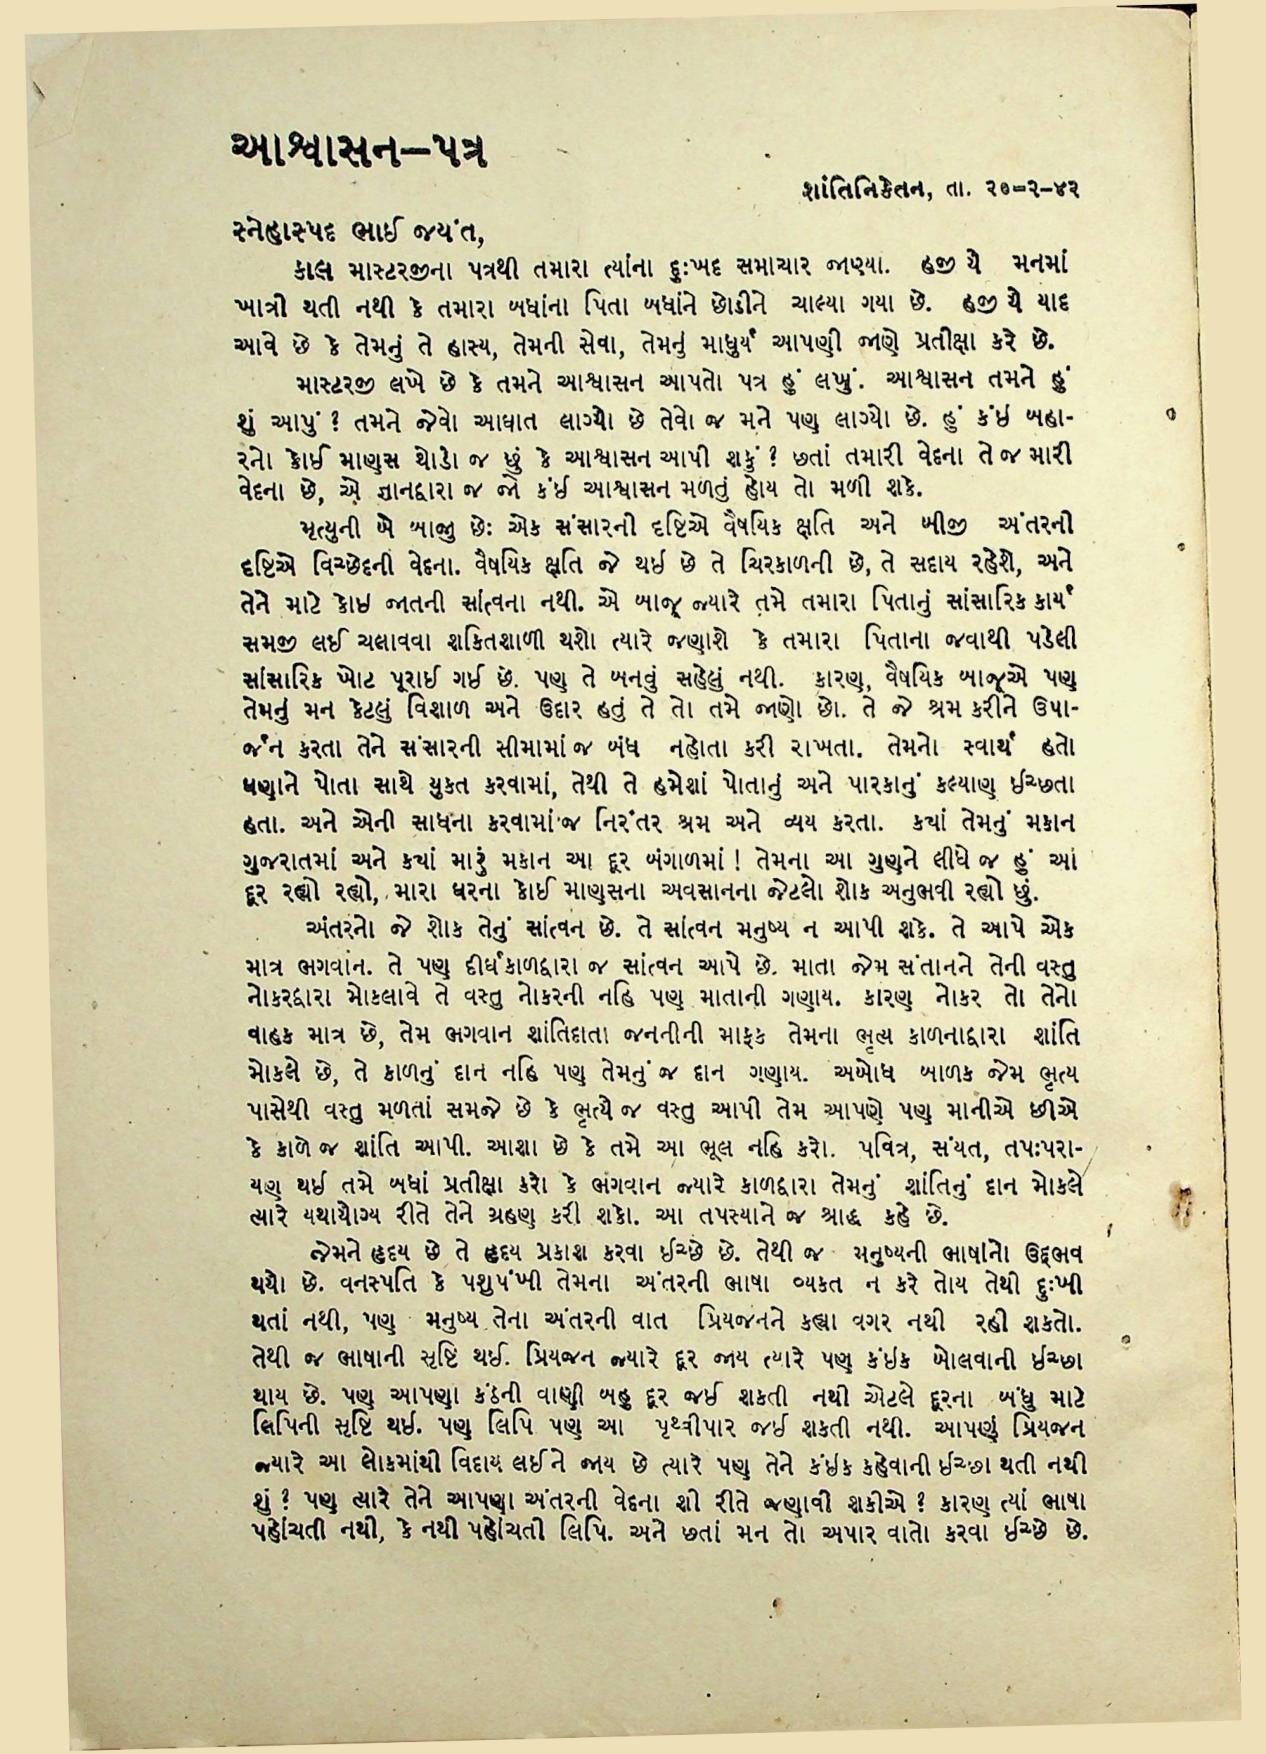 આશ્વાસન–પત્ર
શાંતિનિકેતન, તા. ૨૭-૨-૪૨
સ્નેહાસ્પદ ભાઈ જયંત,
કાલ માસ્ટરજીના પત્રથી તમારા ત્યાંના દુઃખદ સમાચાર જાણ્યા. હજી યે મનમાં
ખાત્રી થતી નથી કે તમારા બધાંના પિતા બધાંને છોડીને ચાલ્યા ગયા છે. હજી યે યાદ
આવે છે કે તેમનું તે હાસ્ય, તેમની સેવા, તેમનું માધુર્ય આપણી જાણે પ્રતીક્ષા કરે છે.
માસ્ટરજી લખે છે કે તમને આશ્વાસન આપતો પત્ર હું લખું. આશ્વાસન તમને હું
શું આપું ? તમને જેવો આઘાત લાગ્યો છે તેવો જ મને પણ લાગ્યો છે. હું કંઈ બહા-
રનો કોઈ માણસ થોડો જ છું કે આશ્વાસન આપી શકું ? છતાં તમારી વેદના તે જ મારી
વેદના છે, એ જ્ઞાનદ્વારા જ જો કંઈ આશ્વાસન મળતું હોય તો મળી શકે.
મૃત્યુની બે બાજુ છેઃ એક સંસારની દૃષ્ટિએ વૈષયિક ક્ષતિ અને બીજી અંતરની
દૃષ્ટિએ વિચ્છેદની વેદના. વૈષયિક ક્ષતિ જે થઈ છે તે ચિરકાળની છે, તે સદાય રહેશે, અને
તેને માટે કોઈ જાતની સાંત્વના નથી. એ બાજૂ જ્યારે તમે તમારા પિતાનું સાંસારિક કાર્ય
સમજી લઈ ચલાવવા શકિતશાળી થશો ત્યારે જણાશે કે તમારા પિતાના જવાથી પડેલી
સાંસારિક ખોટ પૂરાઈ ગઈ છે. પણ તે બનવું સહેલું નથી. કારણ, વૈષયિક બાજૂએ પણ
તેમનું મન કેટલું વિશાળ અને ઉદાર હતું તે તો તમે જાણો છો. તે જે શ્રમ કરીને ઉપા-
ર્જન કરતા તેને સંસારની સીમામાં જ બંધ નહોતા કરી રાખતા. તેમનો સ્વાર્થ હતો
ઘણાને પોતા સાથે યુકત કરવામાં, તેથી તે હમેશાં પોતાનું અને પારકાનું કલ્યાણ ઈચ્છતા
હતા. અને એની સાધના કરવામાં જ નિરંતર શ્રમ અને વ્યય કરતા. ક્યાં તેમનું મકાન
ગુજરાતમાં અને ક્યાં મારું મકાન આ દૂર બંગાળમાં ! તેમના આ ગુણને લીધે જ હું આ
દૂર રહ્યો રહ્યો, મારા ઘરના કોઈ માણસના અવસાનના જેટલો શોક અનુભવી રહ્યો છું.
અંતરનો જે શોક તેનું સાંત્વન છે. તે સાંત્વન મનુષ્ય ન આપી શકે. તે આપે એક
માત્ર ભગવાન. તે પણ દીર્ઘકાળદ્વારા જ સાંત્વન આપે છે. માતા જેમ સંતાનને તેની વસ્તુ
નોકરદ્વારા મોકલાવે તે વસ્તુ નોકરની નહિ પણ માતાની ગણાય. કારણ નોકર તો તેનો
વાહક માત્ર છે, તેમ ભગવાન શાંતિદાતા જનનીની માફક તેમના ભૃત્ય કાળનાદ્વારા શાંતિ
મોકલે છે, તે કાળનું દાન નહિ પણ તેમનું જ દાન ગણાય. અબોધ બાળક જેમ ભૃત્ય
પાસેથી વસ્તુ મળતાં સમજે છે કે ભૃત્યે જ વસ્તુ આપી તેમ આપણે પણ માનીએ છીએ
કે કાળે જ શાંતિ આપી. આશા છે કે તમે આ ભૂલ નહિ કરો. પવિત્ર, સંયત, તપઃપરા-
યણ થઈ તમે બધાં પ્રતીક્ષા કરો કે ભગવાન જ્યારે કાળદ્વારા તેમનું શાંતિનું દાન મોકલે
ત્યારે યથાયોગ્ય રીતે તેને ગ્રહણ કરી શકો. આ તપસ્યાને જ શ્રાદ્ધ કહે છે.
જેમને હૃદય છે તે હૃદય પ્રકાશ કરવા ઈચ્છે છે. તેથી જ મનુષ્યની ભાષાનો ઉદ્દભવ
થયો છે. વનસ્પતિ કે પશુપંખી તેમના અંતરની ભાષા વ્યકત ન કરે તોય તેથી દુઃખી
થતાં નથી, પણ મનુષ્ય તેના અંતરની વાત પ્રિયજનને કહ્યા વગર નથી રહી શકતો.
તેથી જ ભાષાની સૃષ્ટિ થઈ. પ્રિયજન જ્યારે દૂર જાય ત્યારે પણ કંઈક બોલવાની ઈચ્છા
થાય છે. પણ આપણા કંઠની વાણી બહુ દૂર જઈ શકતી નથી એટલે દૂરના બંધુ માટે
લિપિની સૃષ્ટિ થઈ. પણ લિપિ પણ આ પૃથ્વીપાર જઈ શકતી નથી. આપણું પ્રિયજન
જ્યારે આ લોકમાંથી વિદાય લઈને જાય છે ત્યારે પણ તેને કંઈક કહેવાની ઈચ્છા થતી નથી
શું ? પણ ત્યારે તેને આપણા અંતરની વેદના શી રીતે જણાવી શકીએ ? કારણ ત્યાં ભાષા
પહોંચતી નથી, કે નથી પહોંચતી લિપિ. અને છતાં મન તો અપાર વાતો કરવા ઈચ્છે છે.